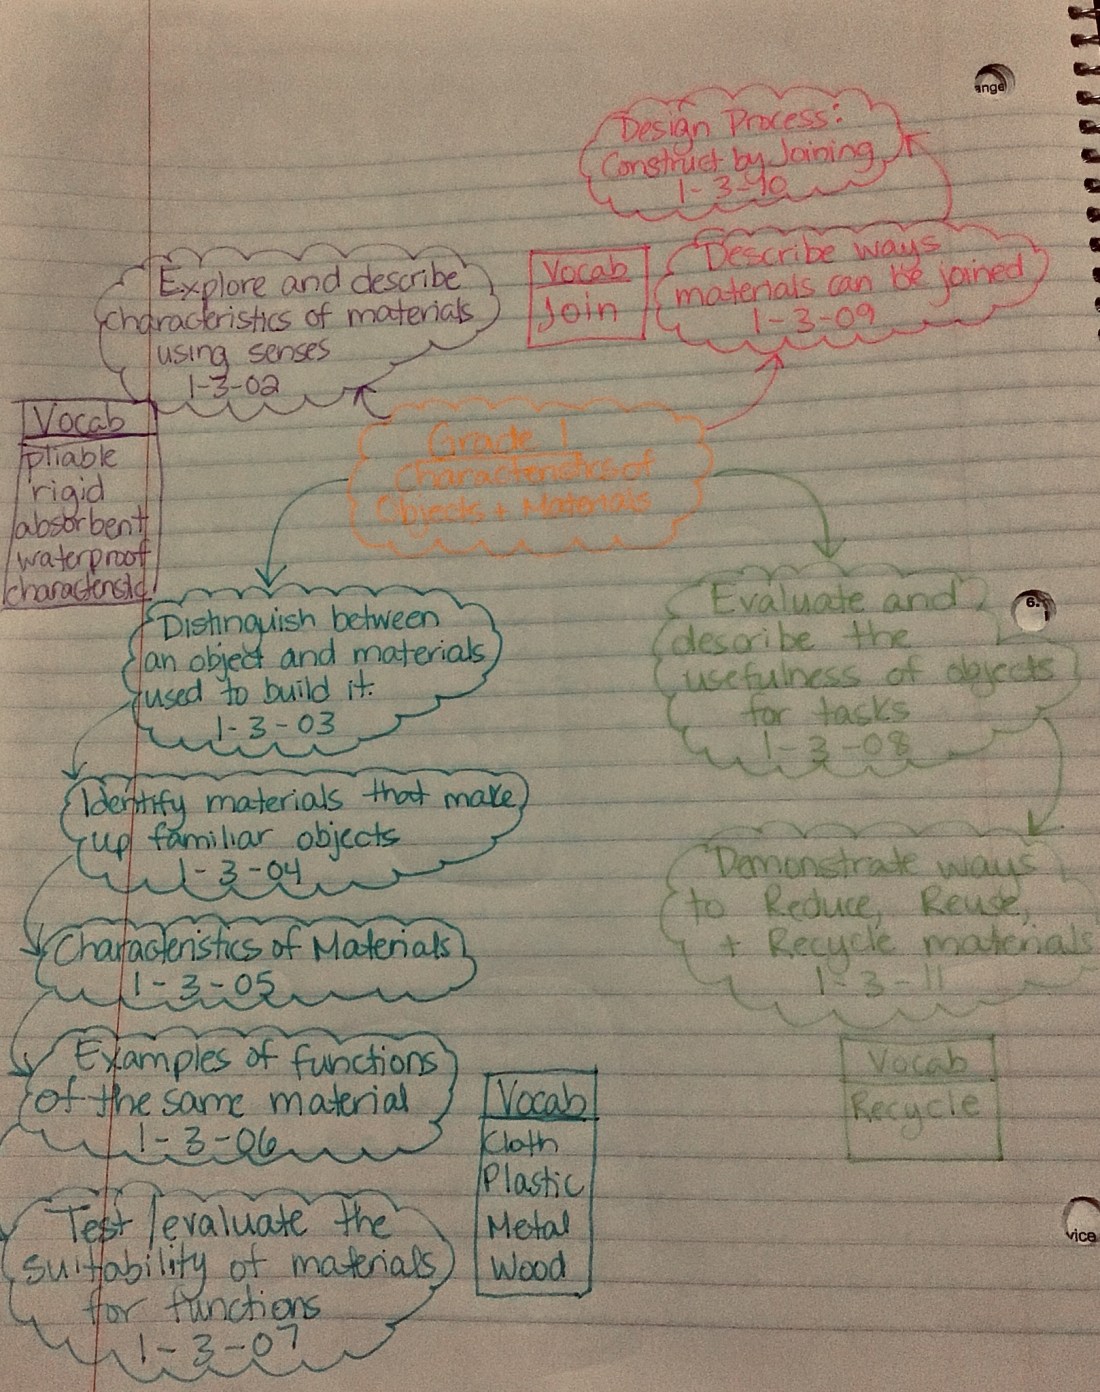 ange
Design Process:
Construct by Joining
1-3-10
Describe ways
materials can be joined
1-3-09
Vocab
Join
Explore and describe
characteristics of materials
using senses
1-3-02
Vocab
pliable
rigid
absorbent
waterproof
characteristic
Grade 1
Characteristics of
Objects + Materials
Distinguish between
an object and materials
used to build it.
1-3-03
Identify materials that make
up familiar objects
1-3-04
Characteristics of Materials
1-3-05
Examples of functions
of the same material
1-3-06
Test/evaluate the
suitability of materials
for functions
1-3-07
Vocab
Cloth
Plastic
Metal
Wood
6.
Evaluate and
describe the
usefulness of objects
for tasks
1-3-08
Demonstrate ways
to Reduce, Reuse,
+ Recycle materials
1-3-11
Vocab
Recycle
vice